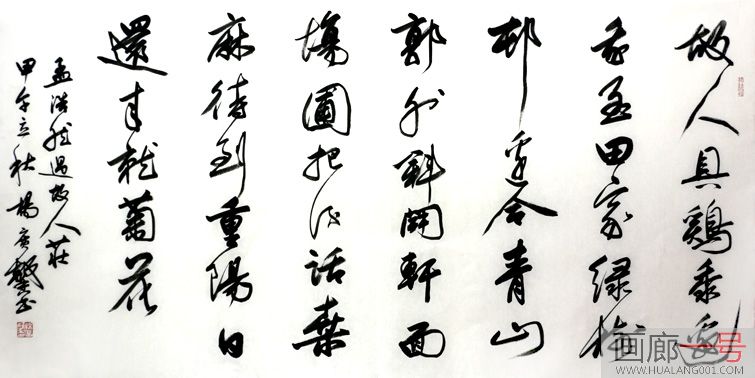 故人具鷄黍邀
我至田家绿樹
邨邊合青山
郭外斜開軒面
塲圃把酒話桑
麻待到重陽日
還来就菊花
孟浩然过故人莊
甲午立秋楊广馨书
画廊一号
WWW.HUALANG001.COM